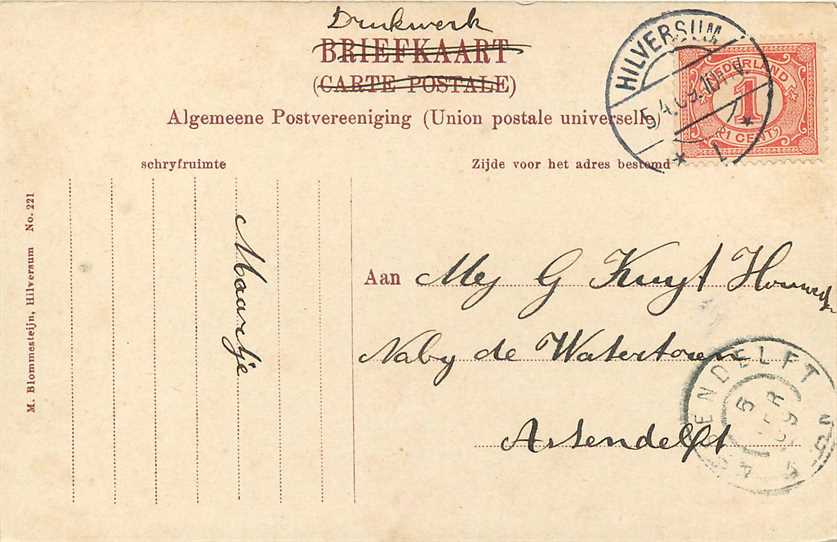 Drukwerk
BRIEFKAART
(CARTE POSTALE)
Algemeene Postvereeniging (Union postale universelle)
HILVERSUM
5.4.09.10-11V.
1
NEDERLAND
1
1 CENT
schryfruimte
Zijde voor het adres bestemd
M. Blommesteijn, Hilversum No. 221
Maartje
Aan Mej G Kuyt
Naby de Watertoren
Assendelft
ENDELFT
5